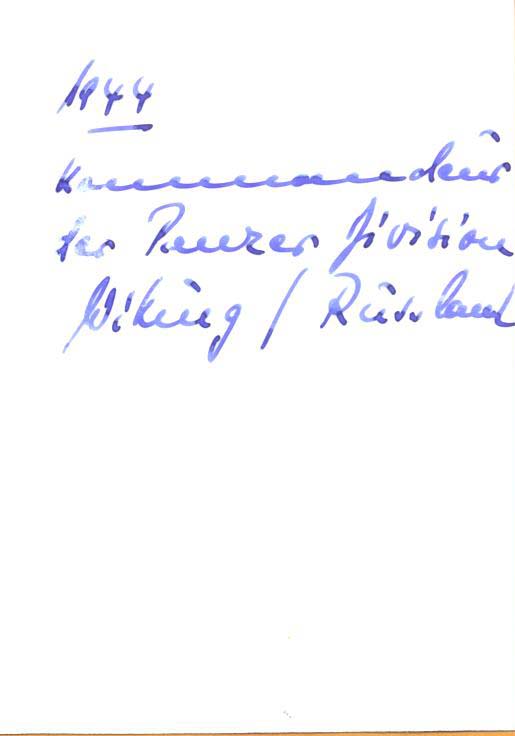 1944
Kommandeur
der Panzer Division
Wiking / Russland